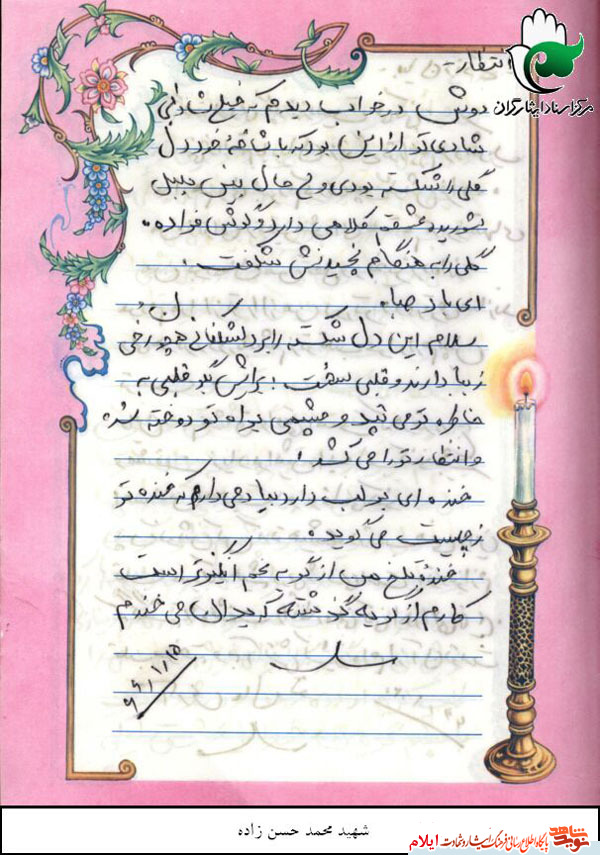 انتظار -
مرکز اسناد ایثارگران
دوش در خواب دیدم که خیلی شادمانی
شادی تو از این بود که با شاخه خود دل
گلی را شکسته بودی ولی حال ببین بلبل
شوریده عشقم کلامی دارد گوش فرا ده.
گلی را به هنگام نچیدنش شگفت.
ای باد صبا،
سلام این دل شکسته را بر دلشدگانی همچو رخی
زیبا دارند و قلبی سخت؛ برایش بگو قلبی به
خاطره تو می تپد و چشمی براه تو دوخته شده
و انتظار تو را می کشد.
خنده ای بر لب دارد بیاد می دارم که خنده تو
ز چیست می گوید
خنده تلخ من از گریه غم انگیزتر است
کارم از گریه گذشته که بدان می خندم
۶۶/۱/۱۵
شهید محمد حسن زاده
نوید شاهد
پایگاه اطلاع رسانی فرهنگ ایثار و شهادت ایلام